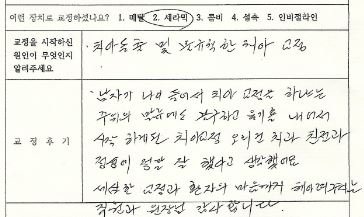 어떤 장치로 교정하셨나요? 1. 메탈 2. 세라믹 3. 콤비 4. 설측 5. 인비절라인
교정을 시작하신
원인이 무엇인지
알려주세요
치아돌출 및 불규칙한 치아 교정
교 정 후 기
남자가 나이 들어서 치아 교정을 하냐는
주위의 만류에도 불구하고 용기를 내어서
시작 하게된 치아교정 오리건 치과 친절과
정성이 정말 잘 했다고 생각했어요
세심한 교정과 환자의 마음까지 헤아려주시는
직원과 원장님 감사 합니다.